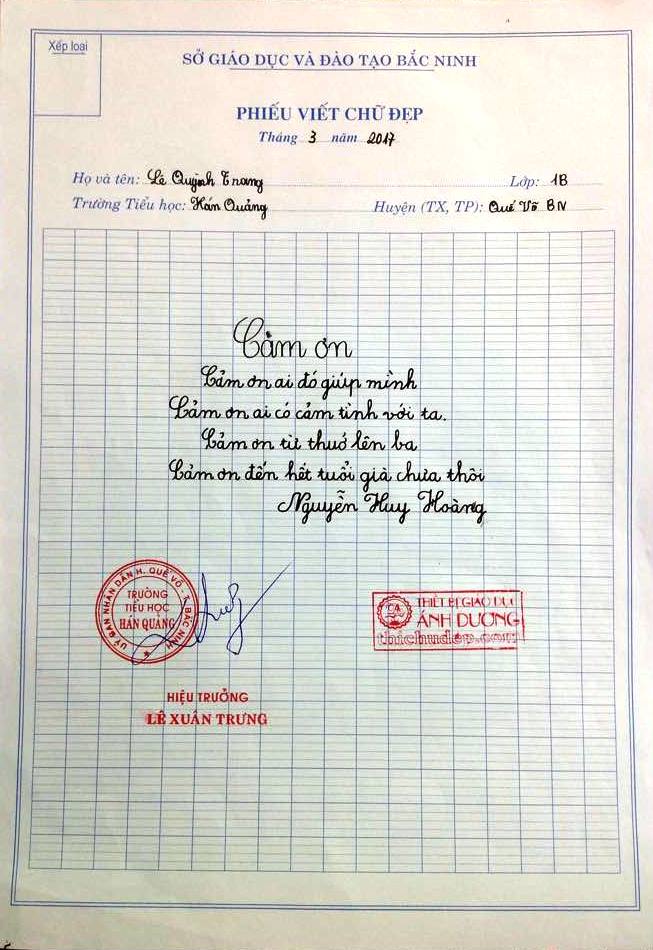 Xếp loại
SỞ GIÁO DỤC VÀ ĐÀO TẠO BẮC NINH
PHIẾU VIẾT CHỮ ĐẸP
Tháng 3 năm 2017
Họ và tên: Lê Quỳnh Trang Lớp: 1B
Trường Tiểu học: Hán Quảng Huyện (TX, TP): Quế Võ BN
Cảm ơn
Cảm ơn ai đó giúp mình
Cảm ơn ai có cảm tình với ta.
Cảm ơn từ thuở lên ba
Cảm ơn đến hết tuổi già chưa thôi
Nguyễn Huy Hoàng
ỦY BAN NHÂN DÂN H. QUẾ VÕ - T. BẮC NINH
TRƯỜNG
TIỂU HỌC
HÁN QUẢNG
THIẾT BỊ GIÁO DỤC
ÁNH DƯƠNG
thichudep.com
HIỆU TRƯỞNG
LÊ XUÂN TRƯNG